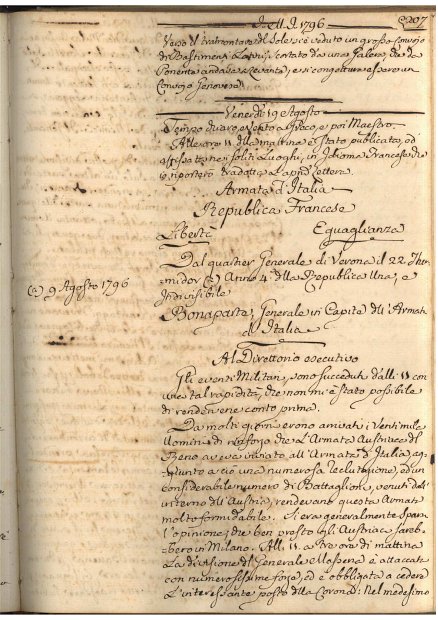 1796
207
Verso il tramontare del Sole si è veduto un grosso Convojo
di Bastimenti scortato da una Galera, che da
Ponente andava a Levante, e si congettura essere un
Convojo Genovese.
Venerdì 19 Agosto
Tempo chiaro, e Vento a Greco, e poi Maestro.
Alle ore 11 della mattina è stato publicato, ed
affisso ne' soliti Luoghi, in Idioma Francese, che
si riporterà tradotta la lettera.
Armata d'Italia
Republica Francese
Libertà Eguaglianza
Dal quartier Generale di Verona il 22 Ther-
midor (a) Anno 4: della Republica Una, e
Indivisibile
(a) 9 Agosto 1796
Bonaparte, Generale in Capite dell'Armata
d'Italia
Al Direttorio esecutivo
Gli eventi Militari, sono succeduti dalli 11 con
una tal rapidità, che non mi è stato possibile
di rendervene conto prima.
Da molti giorni erano arrivati i Ventimila
Uomini di rinforzo che l'Armata Austriaca del
Reno aveva inviato all'Armata d'Italia, ag-
giunto a ciò una numerosa reclutazione, ed un
considerabile numero di Battaglioni, venuti dall'
interno dell'Austria, rendevano questa Armata
molto formidabile. Si era generalmente sparsa
l'opinione, che ben presto gli Austriaci sareb-
bero in Milano. All'11. a tre ore di mattina
La divisione del Generale Massena è attaccata
con numerosissime forze, ed è obbligata a cedere
l'interessante posto della Corona: Nel medesimo